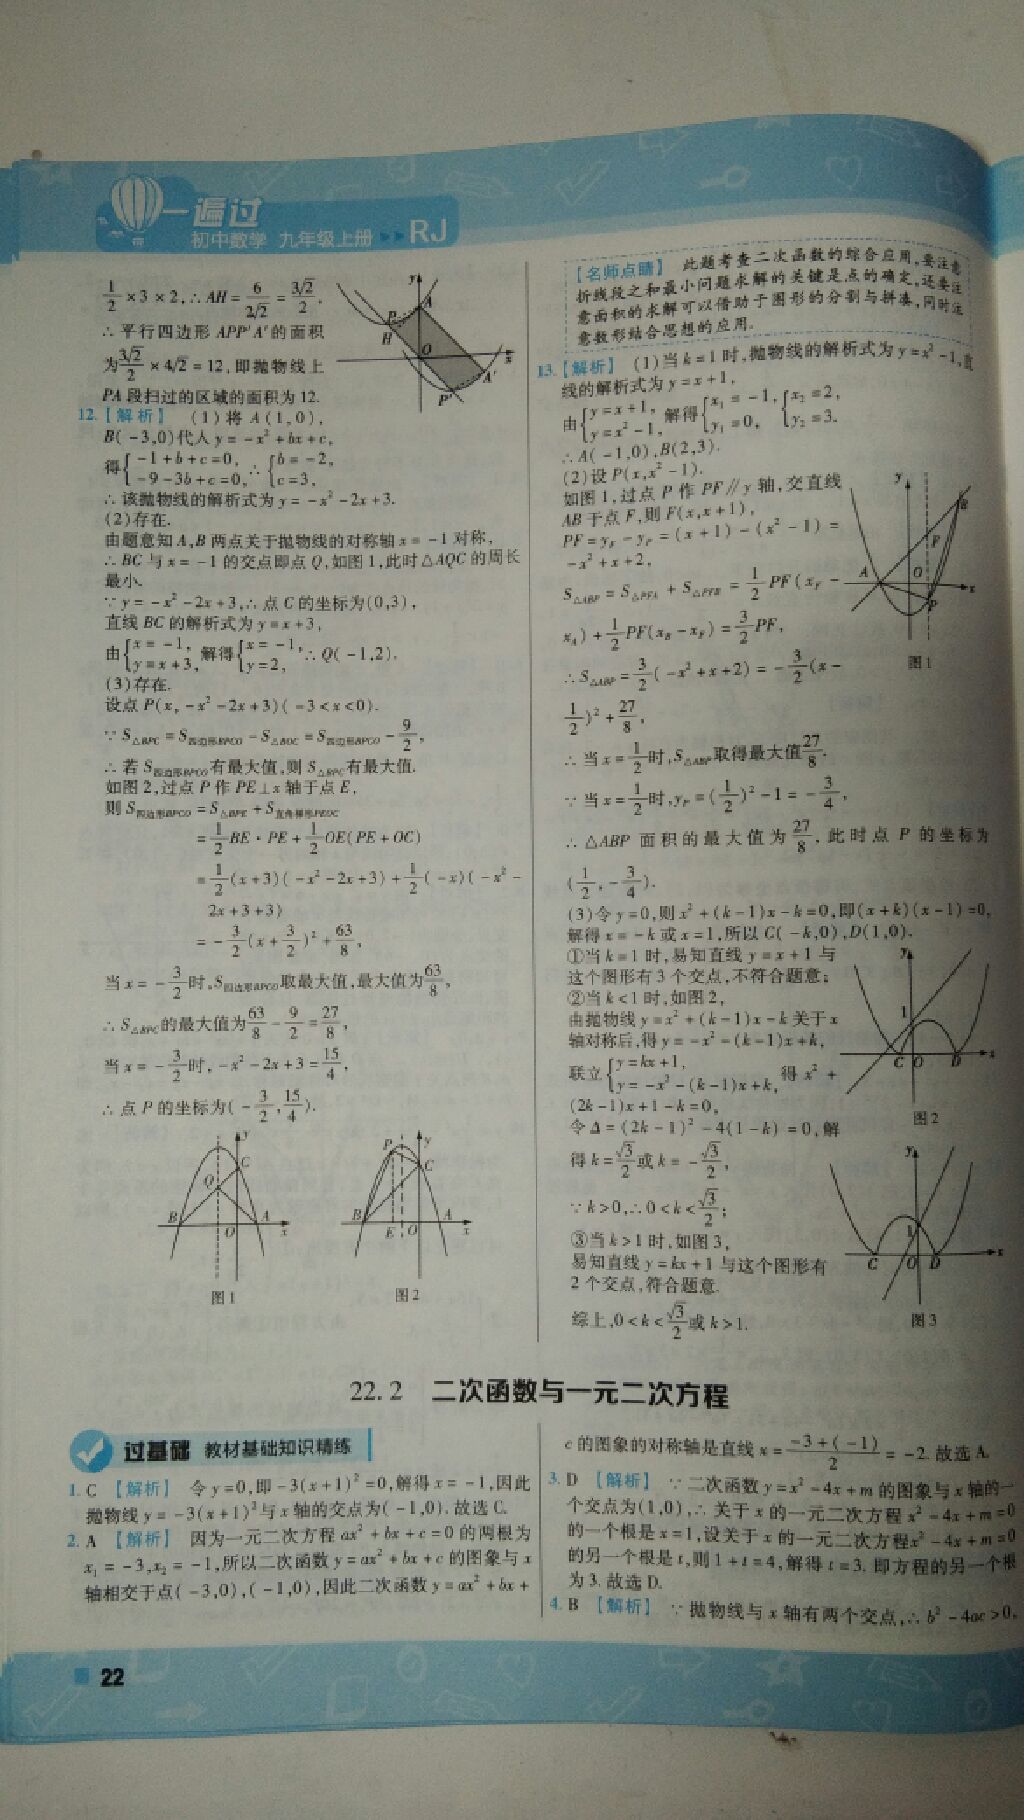 一遍过
初中数学 九年级上册 RJ
1/2×3×2,∴AH=6/(2√2)=3√2/2.
∴平行四边形 APP'A'的面积
为3√2/2×4√2=12,即抛物线上
PA 段扫过的区域的面积为12.
12.【解析】 (1)将 A(1,0),
B(-3,0)代入 y=-x²+bx+c,
得{-1+b+c=0, -9-3b+c=0, ∴{b=-2, c=3,
∴该抛物线的解析式为 y=-x²-2x+3.
(2)存在.
由题意知 A,B 两点关于抛物线的对称轴 x=-1 对称,
∴BC 与 x=-1 的交点即点 Q,如图1,此时△AQC 的周长
最小.
∵y=-x²-2x+3,∴点 C 的坐标为(0,3),
直线 BC 的解析式为 y=x+3,
由{x=-1, y=x+3, 解得{x=-1, y=2, ∴Q(-1,2).
(3)存在.
设点 P(x,-x²-2x+3)(-3<x<0).
∵S△BPC=S四边形BPCO-S△BOC=S四边形BPCO-9/2,
∴若 S四边形BPCO有最大值,则 S△BPC有最大值.
如图2,过点 P 作 PE⊥x 轴于点 E,
则 S四边形BPCO=S△BPE+S直角梯形PEOC
=1/2BE·PE+1/2OE(PE+OC)
=1/2(x+3)(-x²-2x+3)+1/2(-x)(-x²-
2x+3+3)
=-3/2(x+3/2)²+63/8,
当 x=-3/2时,S四边形BPCO取最大值,最大值为63/8,
∴S△BPC的最大值为63/8-9/2=27/8,
当 x=-3/2时,-x²-2x+3=15/4,
∴点 P 的坐标为(-3/2,15/4).
图1
图2
【名师点睛】 此题考查二次函数的综合应用,要注意
折线段之和最小问题求解的关键是点的确定,还要注
意面积的求解可以借助于图形的分割与拼凑,同时注
意数形结合思想的应用.
13.【解析】 (1)当 k=1 时,抛物线的解析式为 y=x²-1,直
线的解析式为 y=x+1,
由{y=x+1, y=x²-1, 解得{x₁=-1, y₁=0, {x₂=2, y₂=3.
∴A(-1,0),B(2,3).
(2)设 P(x,x²-1).
如图1,过点 P 作 PF∥y 轴,交直线
AB 于点 F,则 F(x,x+1),
PF=yF-yP=(x+1)-(x²-1)=
-x²+x+2,
S△ABP=S△PFA+S△PFB=1/2PF(xF-
xA)+1/2PF(xB-xF)=3/2PF,
∴S△ABP=3/2(-x²+x+2)=-3/2(x-
1/2)²+27/8,
∴当 x=1/2时,S△ABP取得最大值27/8.
∵当 x=1/2时,yP=(1/2)²-1=-3/4,
∴△ABP 面积的最大值为27/8,此时点 P 的坐标为
(1/2,-3/4).
(3)令 y=0,则 x²+(k-1)x-k=0,即(x+k)(x-1)=0,
解得 x=-k 或 x=1,所以 C(-k,0),D(1,0).
①当 k=1 时,易知直线 y=x+1 与
这个图形有3个交点,不符合题意;
②当 k<1 时,如图2,
由抛物线 y=x²+(k-1)x-k 关于 x
轴对称后,得 y=-x²-(k-1)x+k,
联立{y=kx+1, y=-x²-(k-1)x+k, 得 x²+
(2k-1)x+1-k=0,
令 Δ=(2k-1)²-4(1-k)=0,解
得 k=√3/2或 k=-√3/2,
∵k>0,∴0<k<√3/2;
③当 k>1 时,如图3,
易知直线 y=kx+1 与这个图形有
2个交点,符合题意.
综上,0<k<√3/2或 k>1.
图1
图2
图3
22.2 二次函数与一元二次方程
过基础 教材基础知识精练
1. C 【解析】 令 y=0,即-3(x+1)²=0,解得 x=-1,因此
抛物线 y=-3(x+1)²与 x 轴的交点为(-1,0).故选 C.
2. A 【解析】 因为一元二次方程 ax²+bx+c=0 的两根为
x₁=-3,x₂=-1,所以二次函数 y=ax²+bx+c 的图象与 x
轴相交于点(-3,0),(-1,0),因此二次函数 y=ax²+bx+
c 的图象的对称轴是直线 x=(-3+(-1))/2=-2.故选 A.
3. D 【解析】 ∵二次函数 y=x²-4x+m 的图象与 x 轴的一
个交点为(1,0),∴关于 x 的一元二次方程 x²-4x+m=0
的一个根是 x=1,设关于 x 的一元二次方程x²-4x+m=0
的另一个根是 t,则 1+t=4,解得 t=3.即方程的另一个根
为3.故选 D.
4. B 【解析】 ∵抛物线与 x 轴有两个交点,∴b²-4ac>0,
22